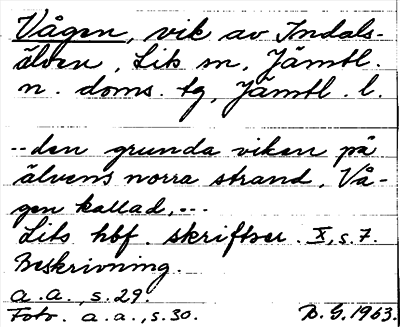 Vågen, vik av Indals-
älven, Lits sn, Jämtl.
n. doms. tg, Jämtl. l.
--den grunda viken på
älvens norra strand, Vå-
gen kallad,---
Lits hbf. skriftser. X, s. 7.
Beskrivning.
a.a., s. 29.
Foto. a.a., s. 30.
B. G. 1963.